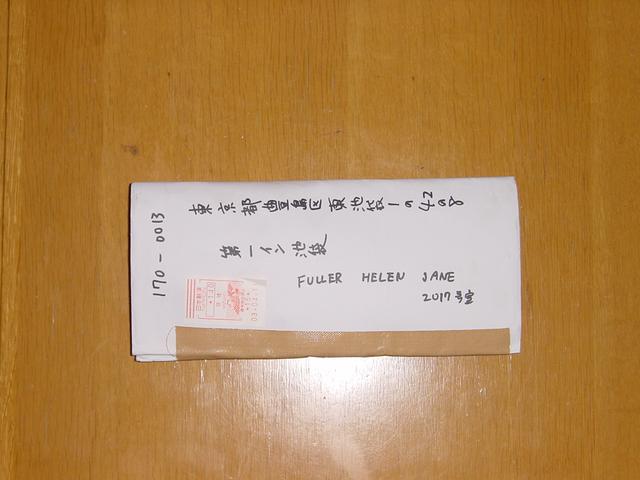 170-0013
東京都豊島区東池袋1の42の8
第一イン池袋
FULLER HELEN JANE
2017号室
日本郵便
140
03.04.1